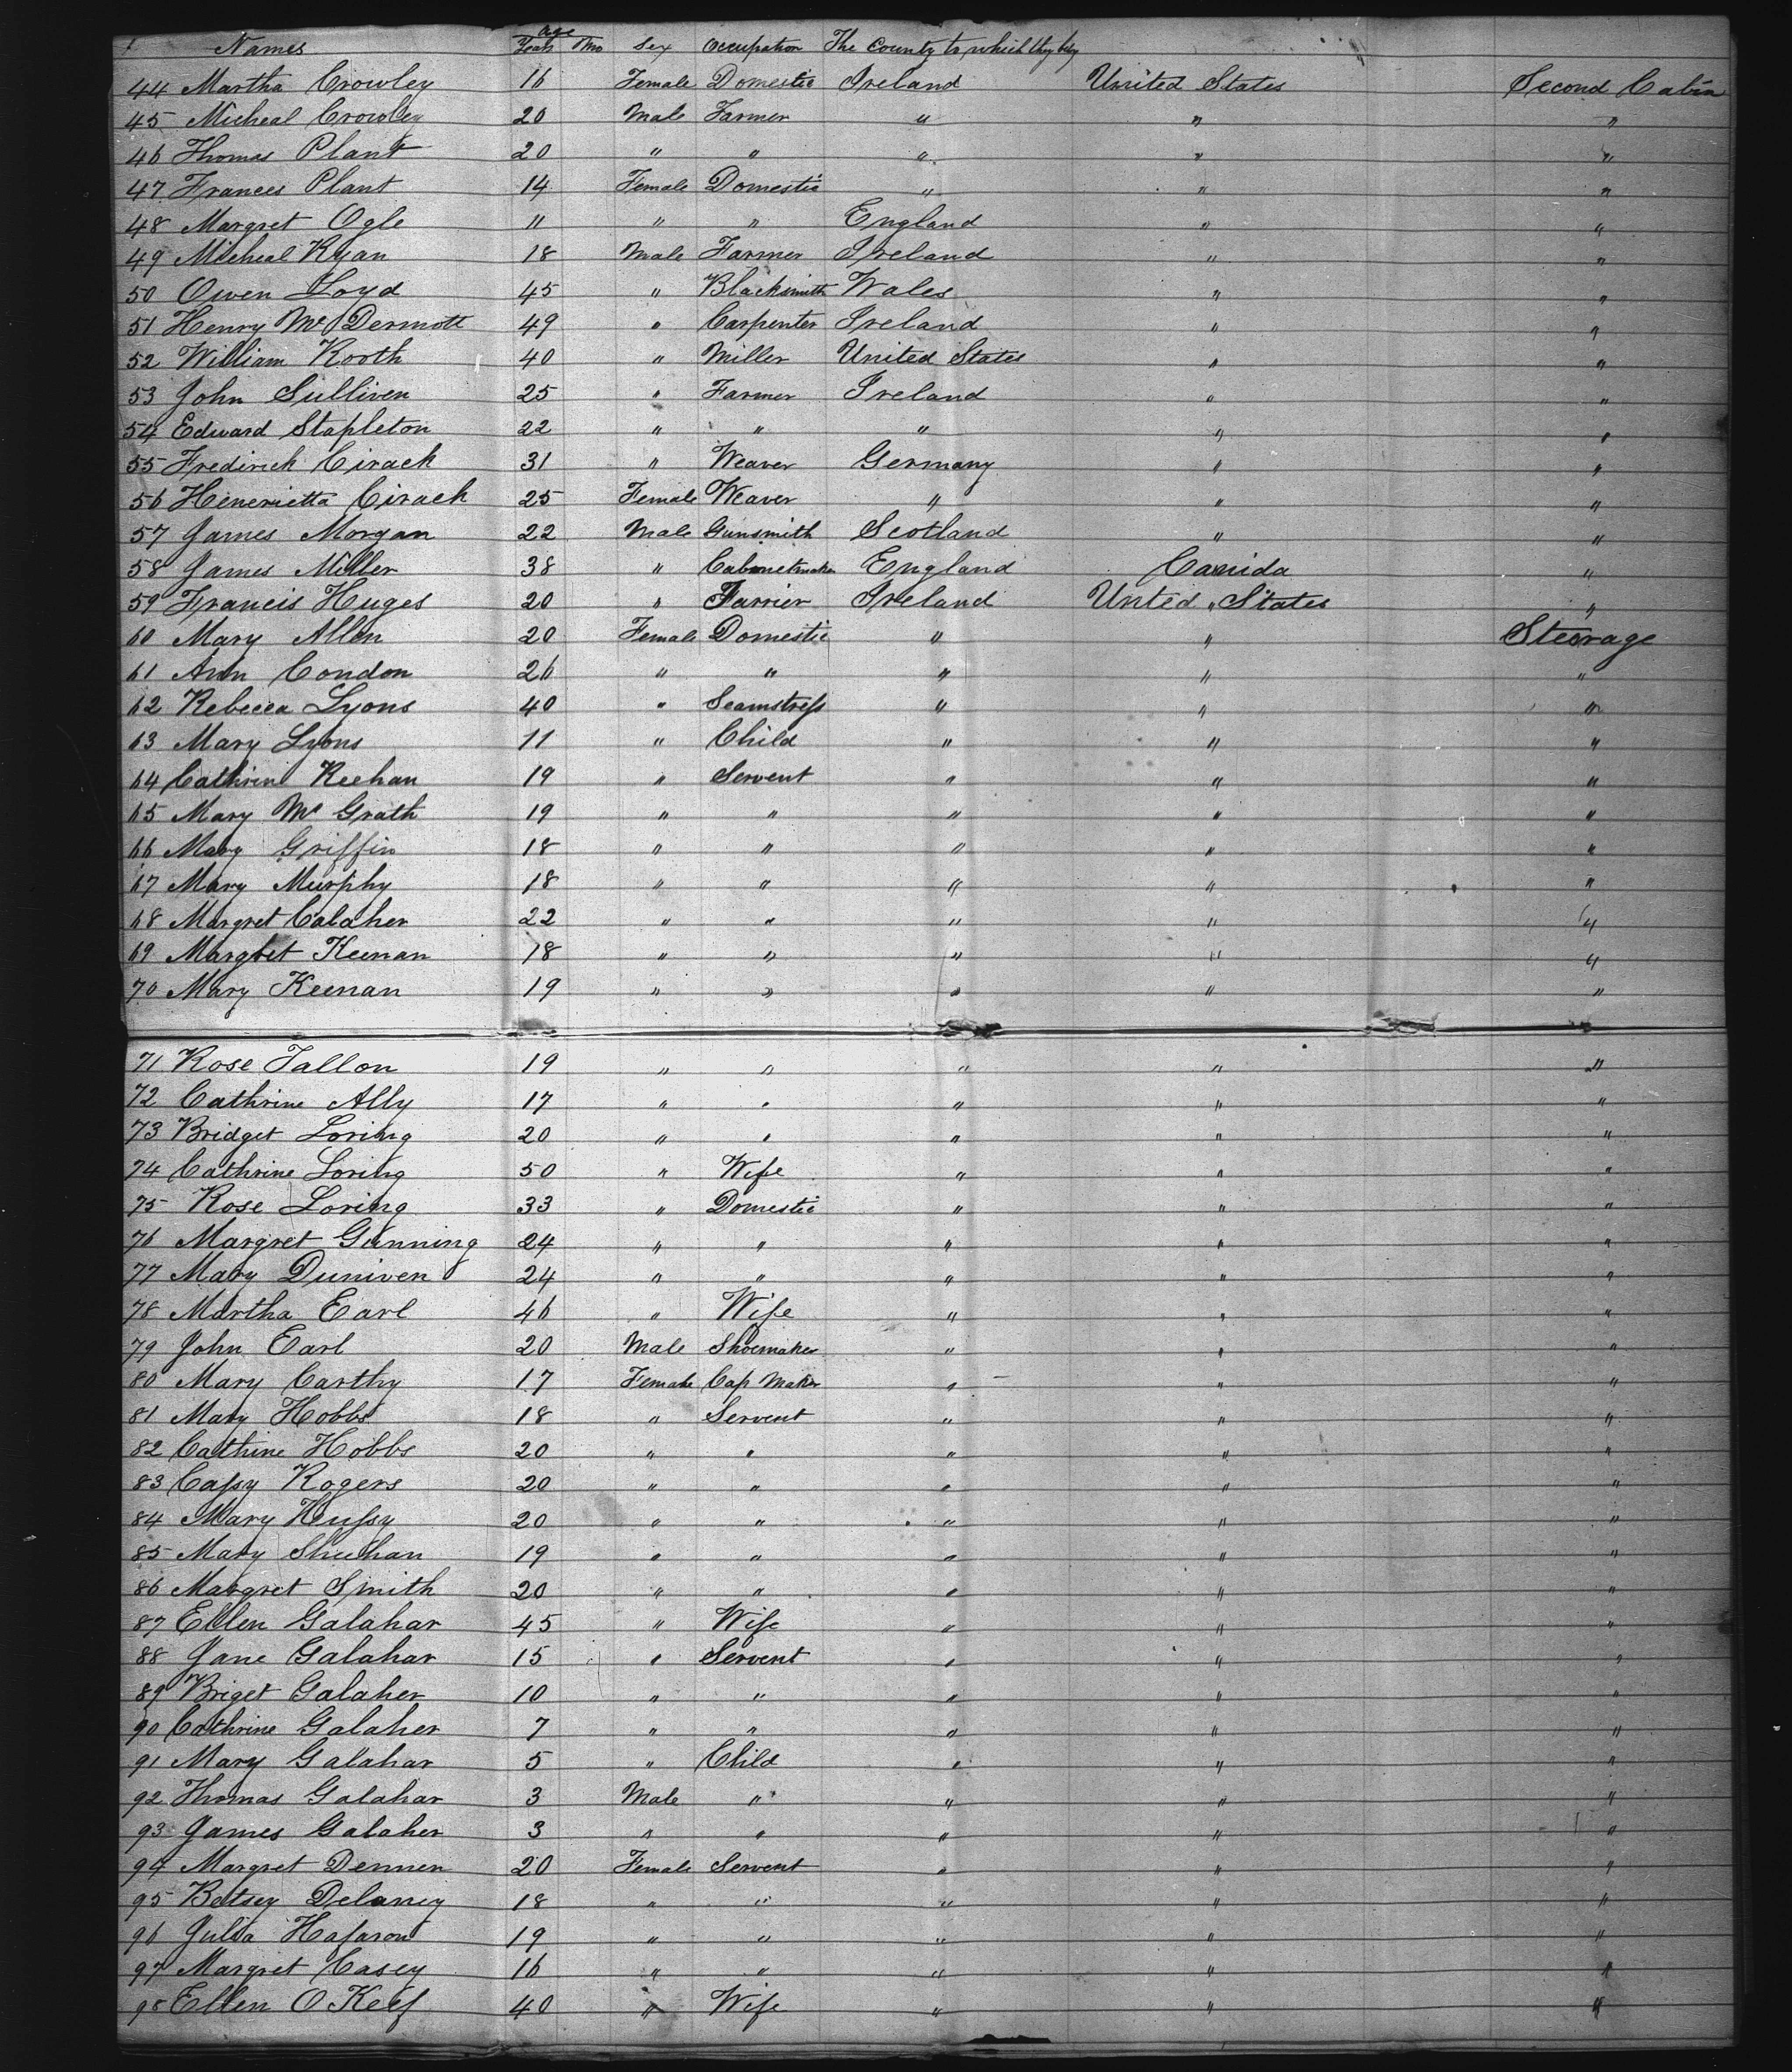 Names Age Years Mo Sex Occupation The County to which they
44 Martha Crowley 16 Female Domestic Ireland United States Second Cabin
45 Micheal Crowley 20 Male Farmer " " "
46 Thomas Plant 20 " " " " "
47 Frances Plant 14 Female Domestic " " "
48 Margret Ogle 11 " " England " "
49 Micheal Ryan 18 Male Farmer Ireland " "
50 Owen Loyd 45 " Blacksmith Wales " "
51 Henry Mc Dermott 49 " Carpenter Ireland " "
52 William Rooth 40 " Miller United States " "
53 John Sulliven 25 " Farmer Ireland " "
54 Edward Stapleton 22 " " " " "
55 Fredirick Cirack 31 " Weaver Germany " "
56 Henerietta Cirack 25 Female Weaver " " "
57 James Morgan 22 Male Gunsmith Scotland " "
58 James Miller 38 " Cabinetmaker England Canida "
59 Francis Huges 20 " Farrier Ireland United States "
60 Mary Allen 20 Female Domestic " " Stearage
61 Ann Condon 26 " " " " "
62 Rebecca Lyons 40 " Seamstress " " "
63 Mary Lyons 11 " Child " " "
64 Cathrine Keehan 19 " Servent " " "
65 Mary Mc Grath 19 " " " " "
66 Mary Griffin 18 " " " " "
67 Mary Murphy 18 " " " " "
68 Margret Calaher 22 " " " " "
69 Margret Keenan 18 " " " " "
70 Mary Keenan 19 " " " " "
71 Rose Fallon 19 " " " " "
72 Cathrine Ally 17 " " " " "
73 Bridget Loring 20 " " " " "
74 Cathrine Loring 50 " Wife " " "
75 Rose Loring 33 " Domestic " " "
76 Margret Gunning 24 " " " " "
77 Mary Duniven 24 " " " " "
78 Martha Earl 46 " Wife " " "
79 John Earl 20 Male Shoemaker " " "
80 Mary Carthy 17 Female Cap Maker " " "
81 Mary Hobbs 18 " Servent " " "
82 Cathine Hobbs 20 " " " " "
83 Cassy Rogers 20 " " " " "
84 Mary Hussy 20 " " " " "
85 Mary Sheehan 19 " " " " "
86 Margret Smith 20 " " " " "
87 Ellen Galahar 45 " Wife " " "
88 Jane Galahar 15 " Servent " " "
89 Briget Galaher 10 " " " " "
90 Cathrine Galaher 7 " " " " "
91 Mary Galahar 5 " Child " " "
92 Thomas Galahar 3 Male " " " "
93 James Galaher 3 " " " " "
94 Margret Dennen 20 Female Servent " " "
95 Betsey Delaney 18 " " " " "
96 Julia 19 " " " " "
97 Margret Casey 16 " " " " "
98 Ellen O Keef 40 " Wife " " "